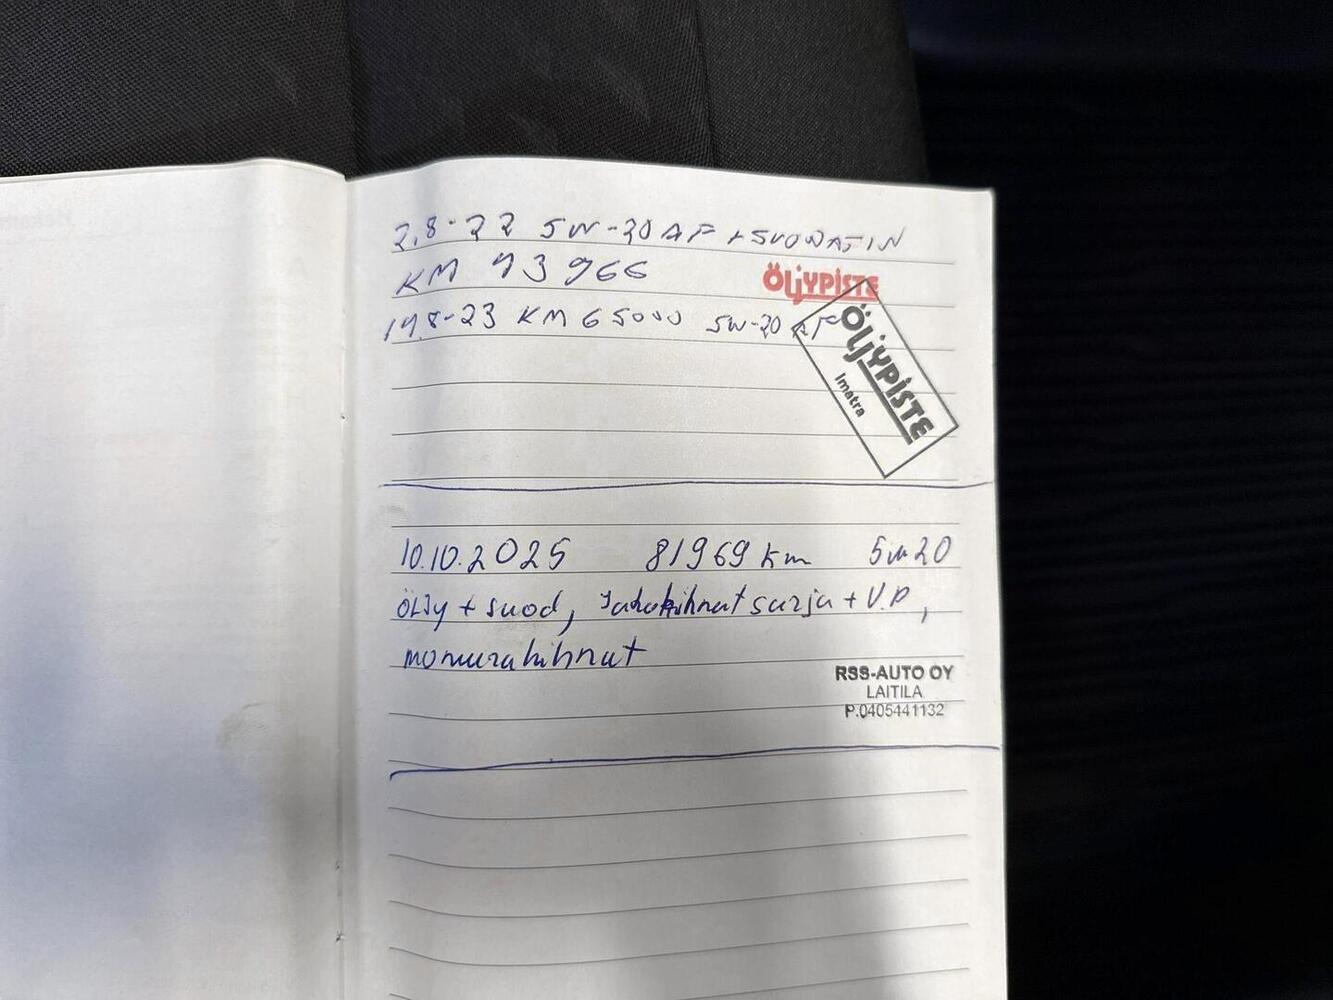 2.8-22 5W-20 AF + SUODATIN
KM 43 966
ÖLJYPISTE
14.8-23 KM 65000 5W-20 AF
ÖLJYPISTE
Imatra
10.10.2025 81969 km 5w20
ÖLJy + suod, Jakohihnat sarja + V.P,
monurahihnat
RSS-AUTO OY
LAITILA
P.0405441132